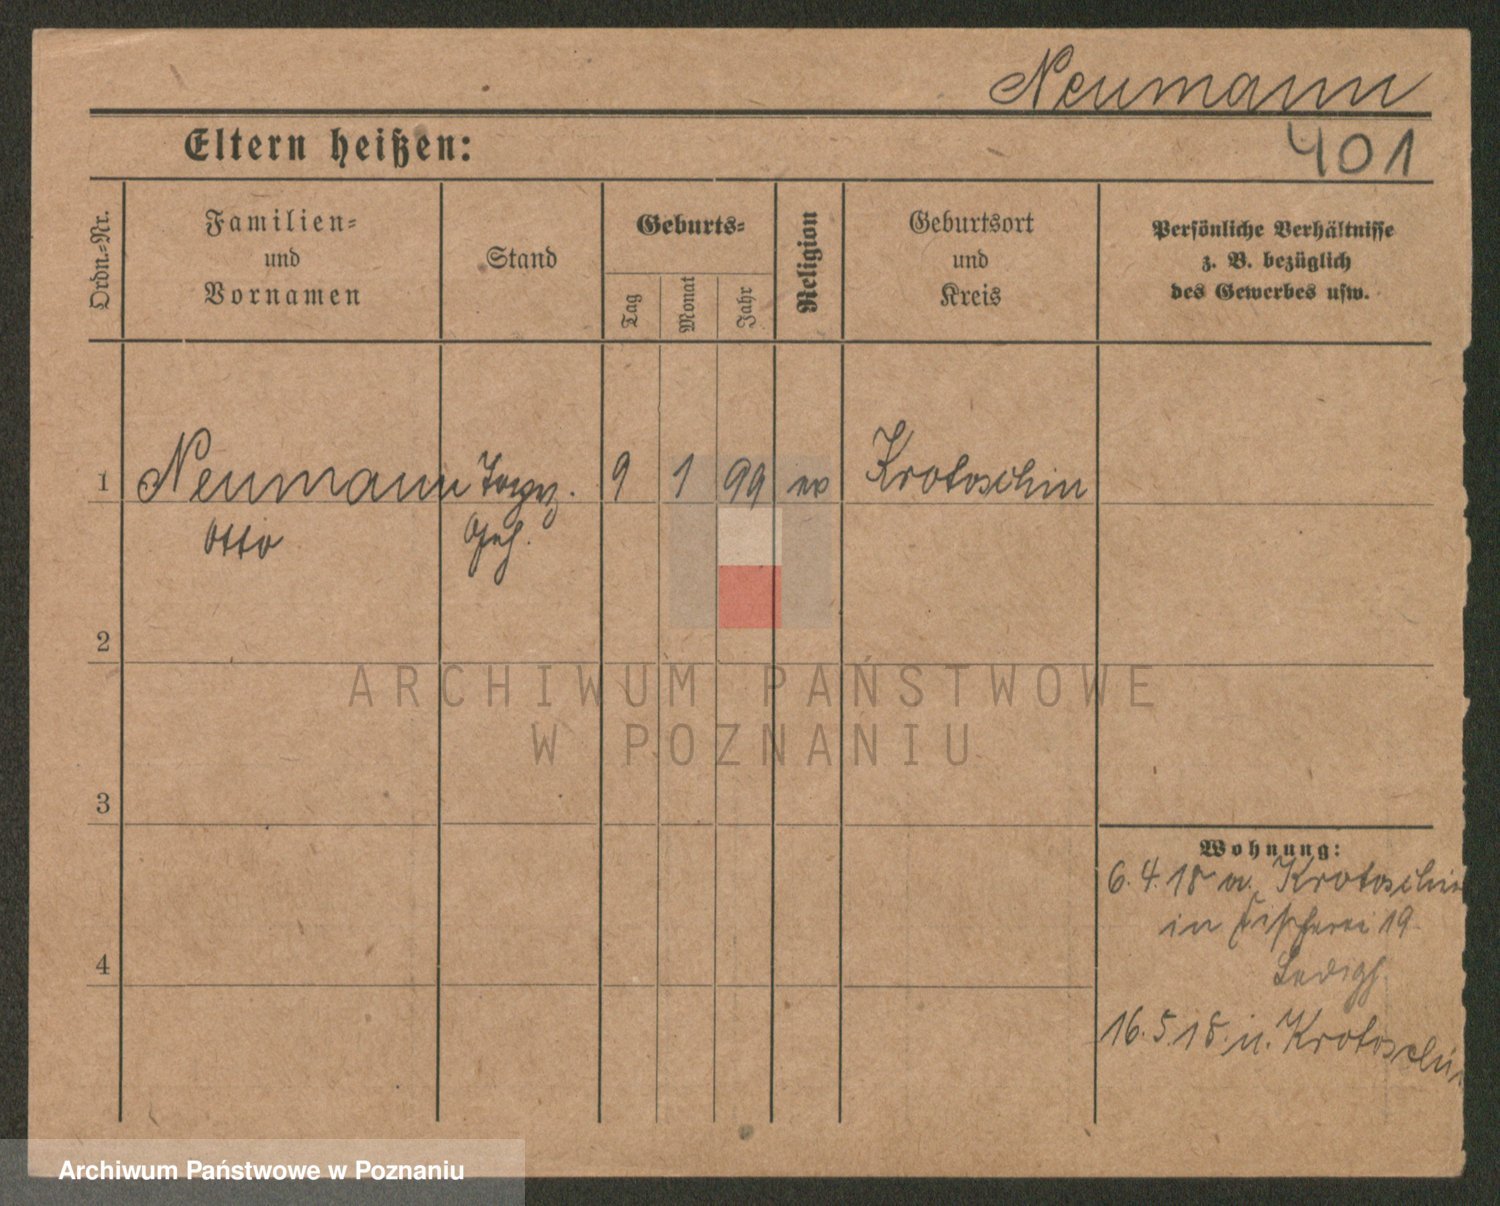 Neumann
401
Eltern heißen:
Ordn.-Nr.
Familien-
und
Vornamen
Stand
Geburts-
Tag
Monat
Jahr
Religion
Geburtsort
und
Kreis
Persönliche Verhältnisse
z. B. bezüglich
des Gewerbes usw.
1 Neumann 9 1 99 ev Krotoschin
Otto
2
3
4
Wohnung:
6.4.18 v. Krotoschin
in 19
16.5.18. n. Krotoschin
ARCHIWUM PAŃSTWOWE
W POZNANIU
Archiwum Państwowe w Poznaniu